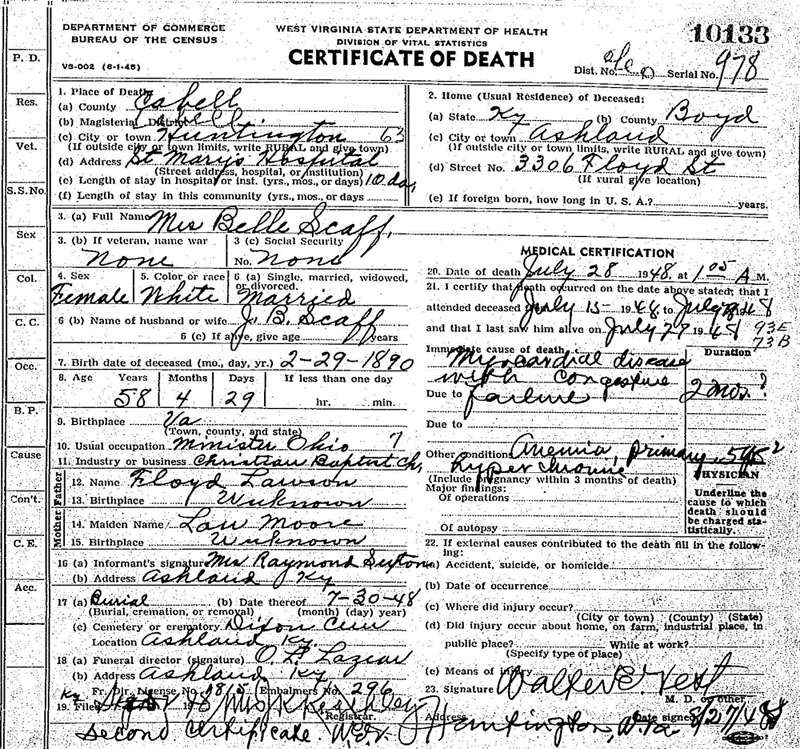 DEPARTMENT OF COMMERCE
BUREAU OF THE CENSUS
VS-002 (6-1-45)
WEST VIRGINIA STATE DEPARTMENT OF HEALTH
DIVISION OF VITAL STATISTICS
CERTIFICATE OF DEATH
10133
Dist. No. Serial No. 978
P. D.
Res.
Vet.
S.S.No.
Sex
Col.
C. C.
Occ.
B. P.
Cause
Con't.
C. E.
Acc.
1. Place of Death
(a) County Cabell
(b) Magisterial District
(c) City or town Huntington 63
(If outside city or town limits, write RURAL and give town)
(d) Address St Mary's Hospital
(Street address, hospital, or institution)
(e) Length of stay in hospital or inst. (yrs., mos., or days) 10 day
(f) Length of stay in this community (yrs., mos., or days
2. Home (Usual Residence) of Deceased:
(a) State Ky (b) County Boyd
(c) City or town Ashland
(If outside city or town limits, write RURAL and give town)
(d) Street No. 3306 Floyd St
(If rural give location)
(e) If foreign born, how long in U. S. A.? years.
3. (a) Full Name Mrs Belle Scaff,
3. (b) If veteran, name war None
3 (c) Social Security No. None
4. Sex Female
5. Color or race White
6 (a) Single, married, widowed, or divorced. Married
6 (b) Name of husband or wife J. B. Scaff
6 (c) If alive, give age years
7. Birth date of deceased (mo., day, yr.) 2-29-1890
8. Age Years Months Days If less than one day
58 4 29 hr. min.
9. Birthplace Va
(Town, county, and state)
10. Usual occupation Minister Ohio 7
11. Industry or business Christian Baptist Ch,
Father
12. Name Floyd Lawson
13. Birthplace Unknown
Mother
14. Maiden Name Moore
15. Birthplace Unknown
16 (a) Informant's signature Mrs Raymond
(b) Address Ashland Ky
17 (a) Burial (b) Date thereof 7-30-48
(Burial, cremation, or removal) (month) (day) (year)
(c) Cemetery or crematory Dixon Cem
Location Ashland Ky.
18 (a) Funeral director (signature)
(b) Address Ashland Ky
Ky Fr. Dir. License No. 1815 Embalmers No. 296
19. Filed
Registrar.
second certificate.
MEDICAL CERTIFICATION
20. Date of death July 28 1948, at 1 05 A M.
21. I certify that death occurred on the date above stated; that I
attended deceased from July 15- 1948 to July 48
and that I last saw him alive on July 27 1948 93E
73B
Immediate cause of death Duration
Myocardial disease
with congestive 2 mos. ?
Due to failure
Due to
Other condition Anemia, primary, 5 yrs 2
hyperchromic
(Include pregnancy within 3 months of death)
Major findings:
Of operations
Of autopsy
PHYSICIAN
Underline the cause to which death should be charged statistically.
22. If external causes contributed to the death fill in the following:
(a) Accident, suicide, or homicide
(b) Date of occurrence
(c) Where did injury occur?
(City or town) (County) (State)
(d) Did injury occur about home, on farm, industrial place, in
public place? While at work?
(Specify type of place)
(e) Means of injury
23. Signature Walter E. Vest
M. D. or other
Address Huntington, W. Va Date signed 8/27/48